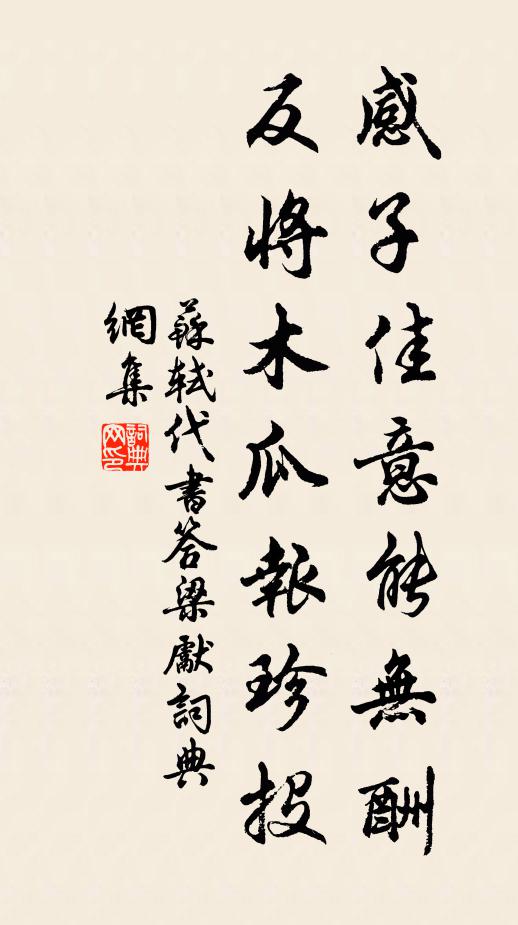 感子佳意能無酬
反將木瓜報珍投
蘇軾代書答梁獻詞典
網集
詞典
网印